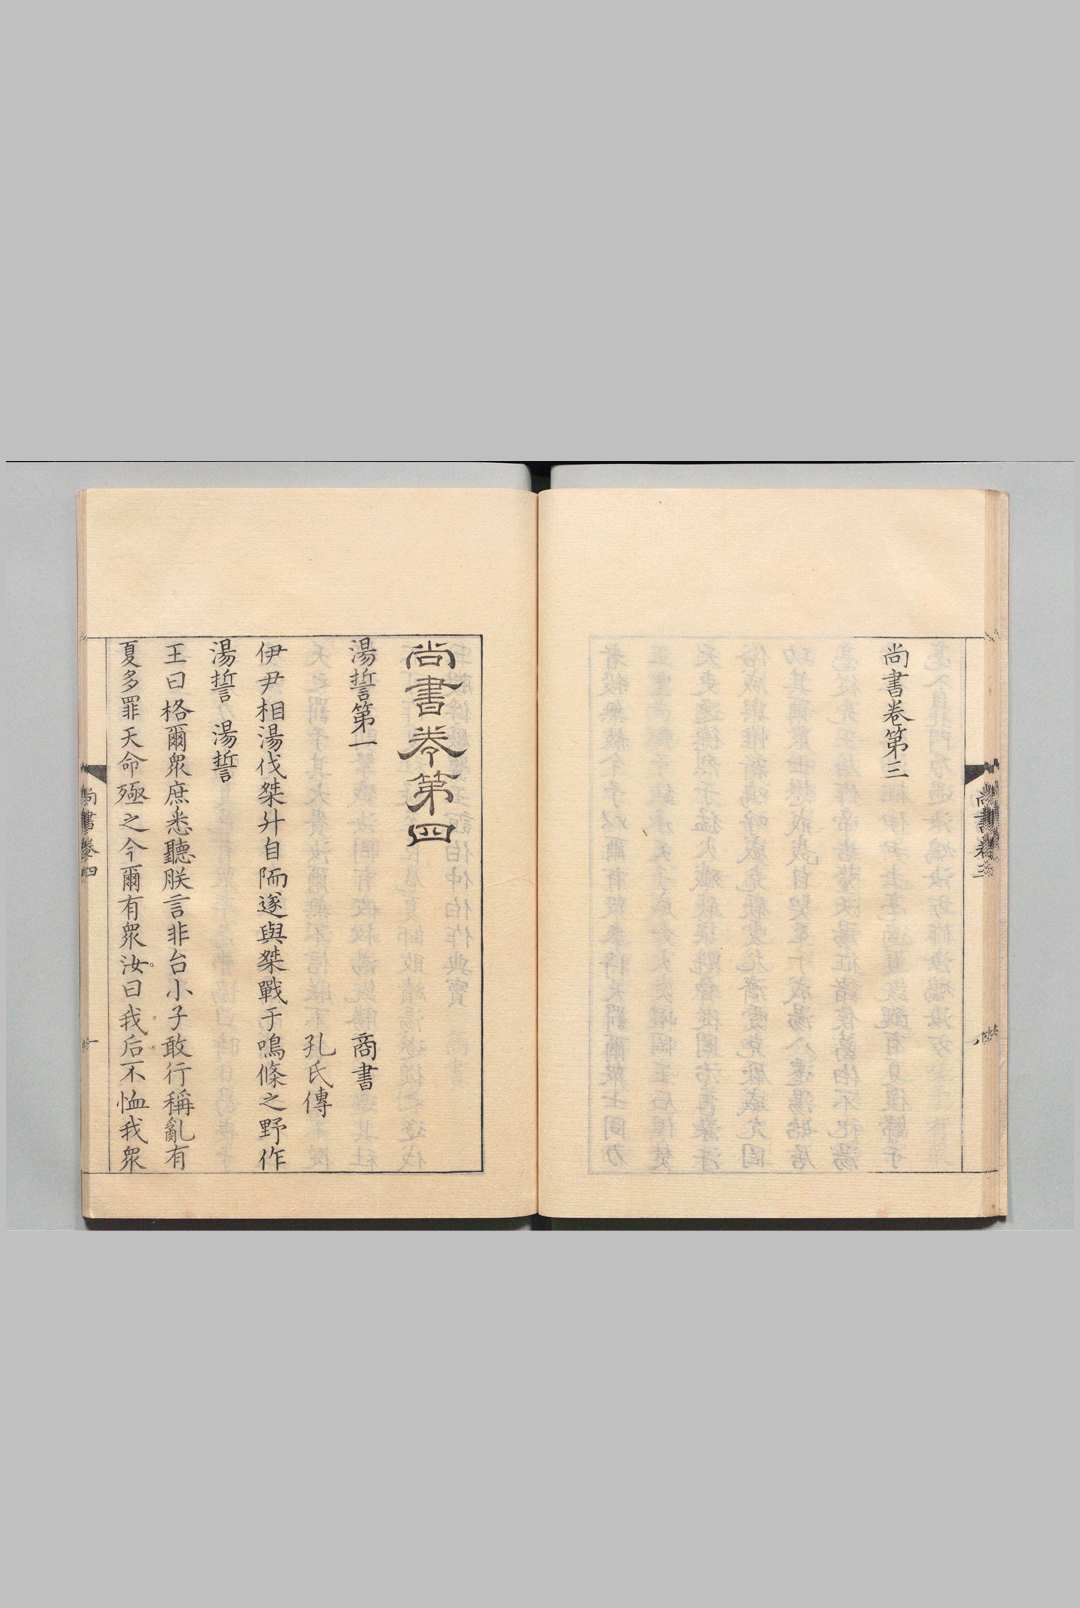 尚書卷三
尚書卷第三
尚書卷第四
湯誓第一 商書
孔氏傳
伊尹相湯伐桀升自陑遂與桀戰于鳴條之野作
湯誓 湯誓
王曰格爾衆庶悉聽朕言非台小子敢行稱亂有
夏多罪天命殛之今爾有衆汝曰我后不恤我衆
尚書卷四